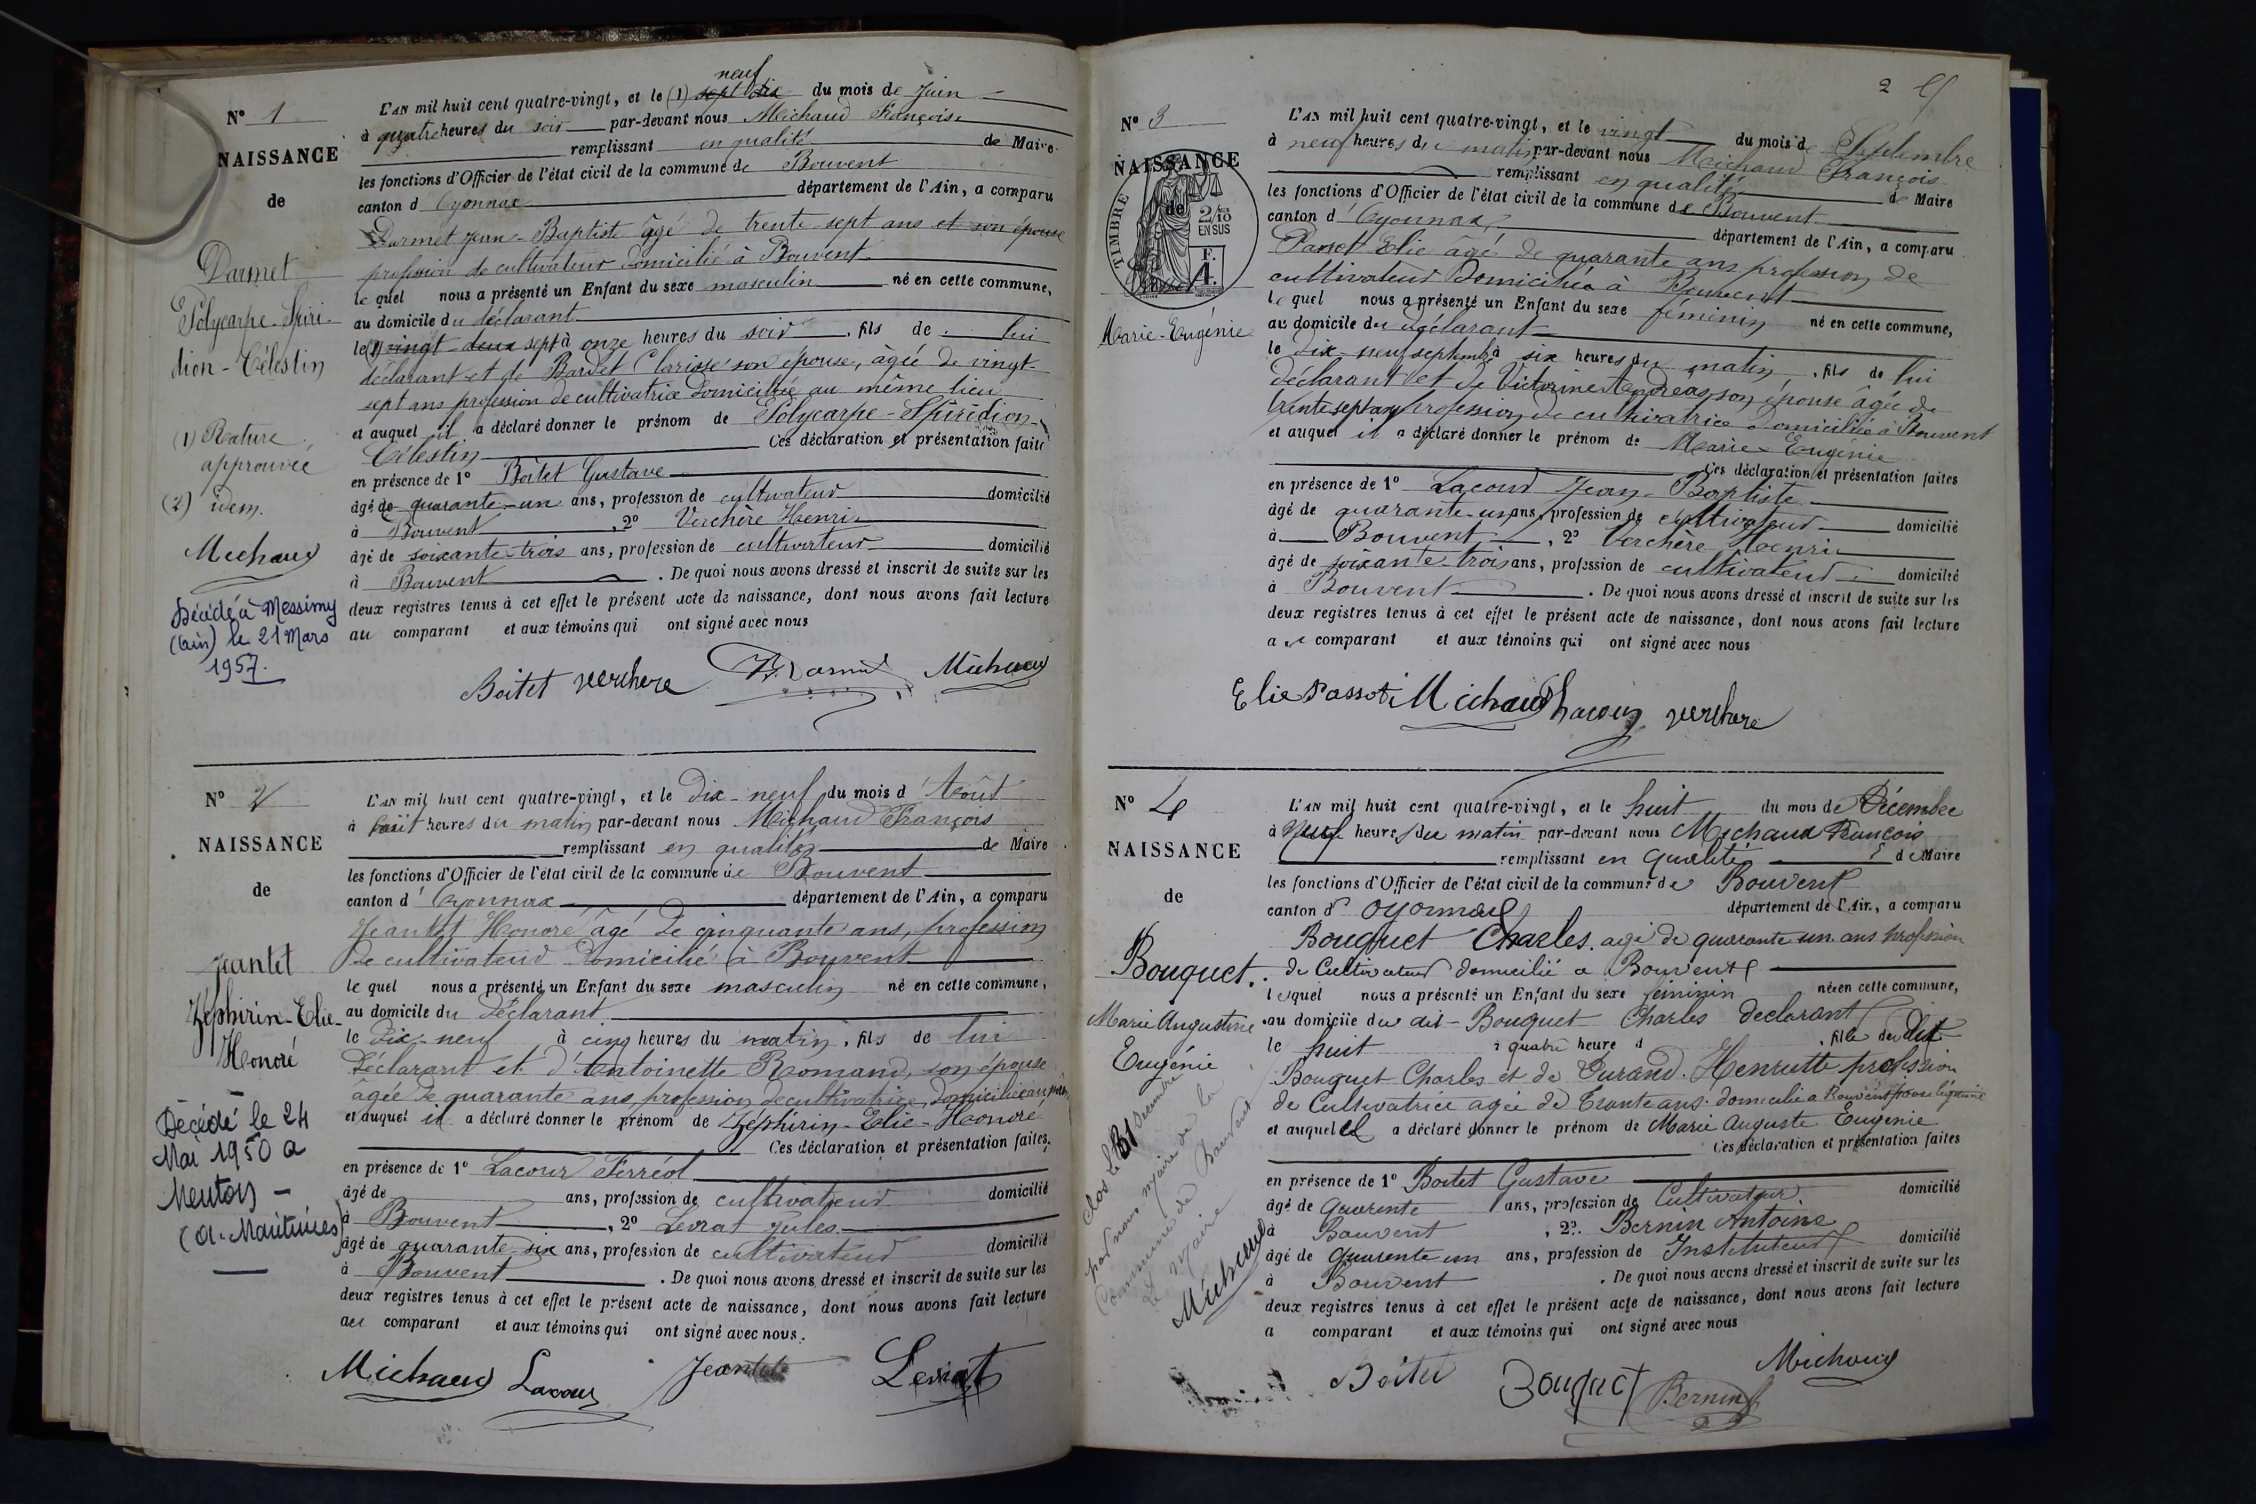 N° 1
NAISSANCE
de
Darmet
Polycarpe-Spiri-
dion-Célestin
(1) Rature
approuvée
(2) idem.
Michaud
Décédé à Messimy
(Ain) le 21 Mars
1957.
neuf
L'AN mil huit cent quatre-vingt, et le (1) sept dix du mois de Juin
à quatre heures du soir par-devant nous Michaud François
remplissant en qualité de Maire
les fonctions d'Officier de l'état civil de la commune de Bouvent
canton d'Oyonnax département de l'Ain, a comparu
Darmet Jean-Baptiste âgé de trente-sept ans et son épouse
profession de cultivateur domicilié à Bouvent
le quel nous a présenté un Enfant du sexe masculin né en cette commune,
au domicile du déclarant
le (2) vingt-deux sept à onze heures du soir, fils de lui
déclarant et de Bardet Clarisse son épouse, âgée de vingt-
sept ans profession de cultivatrice domiciliée au même lieu
et auquel il a déclaré donner le prénom de Polycarpe-Spiridion-
Célestin Ces déclaration et présentation faites
en présence de 1° Boitet Gustave
âgé de quarante-un ans, profession de cultivateur domicilié
à Bouvent, 2° Verchère Henri
âgé de soixante-trois ans, profession de cultivateur domicilié
à Bouvent. De quoi nous avons dressé et inscrit de suite sur les
deux registres tenus à cet effet le présent acte de naissance, dont nous avons fait lecture
au comparant et aux témoins qui ont signé avec nous
Boitet verchere Darmet Michaud
N° 2
NAISSANCE
de
Jeantet
Zéphirin-Elie-
Honoré
Décédé le 24
Mai 1950 à
Menton
(A.-Maritimes)
L'AN mil huit cent quatre-vingt, et le dix-neuf du mois d'Août
à huit heures du matin par-devant nous Michaud François
remplissant en qualité de Maire
les fonctions d'Officier de l'état civil de la commune de Bouvent
canton d'Oyonnax département de l'Ain, a comparu
Jeantet Honoré âgé de cinquante ans, profession
de cultivateur domicilié à Bouvent
le quel nous a présenté un Enfant du sexe masculin né en cette commune,
au domicile du Déclarant
le dix-neuf à cinq heures du matin, fils de lui
Déclarant et d'Antoinette Romand, son épouse
âgée de quarante ans, profession de cultivatrice, domiciliée au
et auquel il a déclaré donner le prénom de Zéphirin-Elie-Honoré
Ces déclaration et présentation faites,
en présence de 1° Lacour Ferréol
âgé de ans, profession de cultivateur domicilié
à Bouvent, 2° Levrat Jules
âgé de quarante-six ans, profession de cultivateur domicilié
à Bouvent. De quoi nous avons dressé et inscrit de suite sur les
deux registres tenus à cet effet le présent acte de naissance, dont nous avons fait lecture
au comparant et aux témoins qui ont signé avec nous.
Michaud Lacour Jeantet Levrat
2
N° 3
NAISSANCE
de
TIMBRE
2/10
EN SUS
F.
Marie-Eugénie
L'AN mil huit cent quatre-vingt, et le vingt du mois de Septembre
à neuf heures du matin par-devant nous Michaud François
remplissant en qualité de Maire
les fonctions d'Officier de l'état civil de la commune de Bouvent
canton d'Oyonnax, département de l'Ain, a comparu
Passot Elie âgé de quarante ans profession de
cultivateur domicilié à Bouvent
le quel nous a présenté un Enfant du sexe féminin né en cette commune,
au domicile du déclarant
le dix-neuf septembre à six heures du matin, fils de lui
déclarant et de Victorine Andréas, son épouse âgée de
trente sept ans profession de cultivatrice domiciliée à Bouvent
et auquel il a déclaré donner le prénom de Marie-Eugénie
Ces déclaration et présentation faites
en présence de 1° Lacour Jean-Baptiste
âgé de quarante-un ans, profession de cultivateur domicilié
à Bouvent, 2° Verchère Henri
âgé de soixante-trois ans, profession de cultivateur domicilié
à Bouvent. De quoi nous avons dressé et inscrit de suite sur les
deux registres tenus à cet effet le présent acte de naissance, dont nous avons fait lecture
au comparant et aux témoins qui ont signé avec nous
Elie Passot Michaud Lacour verchere
N° 4
NAISSANCE
de
Bouquet.
Marie Augustine
Eugénie
Clos le 31 Décembre
par nous maire de la
Commune de Bouvent
le Maire
Michaud
L'AN mil huit cent quatre-vingt, et le huit du mois de Décembre
à Neuf heures du matin par-devant nous Michaud François
remplissant en qualité de Maire
les fonctions d'Officier de l'état civil de la commune de Bouvent
canton d'Oyonnax département de l'Ain, a comparu
Bouquet Charles, agé de quarante un ans profession
de Cultivateur domicilié a Bouvent
lequel nous a présenté un Enfant du sexe féminin née en cette commune,
au domicile du dit Bouquet Charles declarant
le huit à quatre heure d , fille du dit
Bouquet Charles et de Durand Henriette profession
de Cultivatrice agée de trente ans domiciliée a Bouvent épouse légitime
et auquel il a déclaré donner le prénom de Marie Auguste Eugénie
Ces déclaration et présentation faites
en présence de 1° Boitet Gustave
âgé de quarante ans, profession de Cultivateur domicilié
à Bouvent, 2° Bernin Antoine
âgé de quarante un ans, profession de Instituteur domicilié
à Bouvent. De quoi nous avons dressé et inscrit de suite sur les
deux registres tenus à cet effet le présent acte de naissance, dont nous avons fait lecture
a comparant et aux témoins qui ont signé avec nous
Boitet Bouquet Bernin Michaud